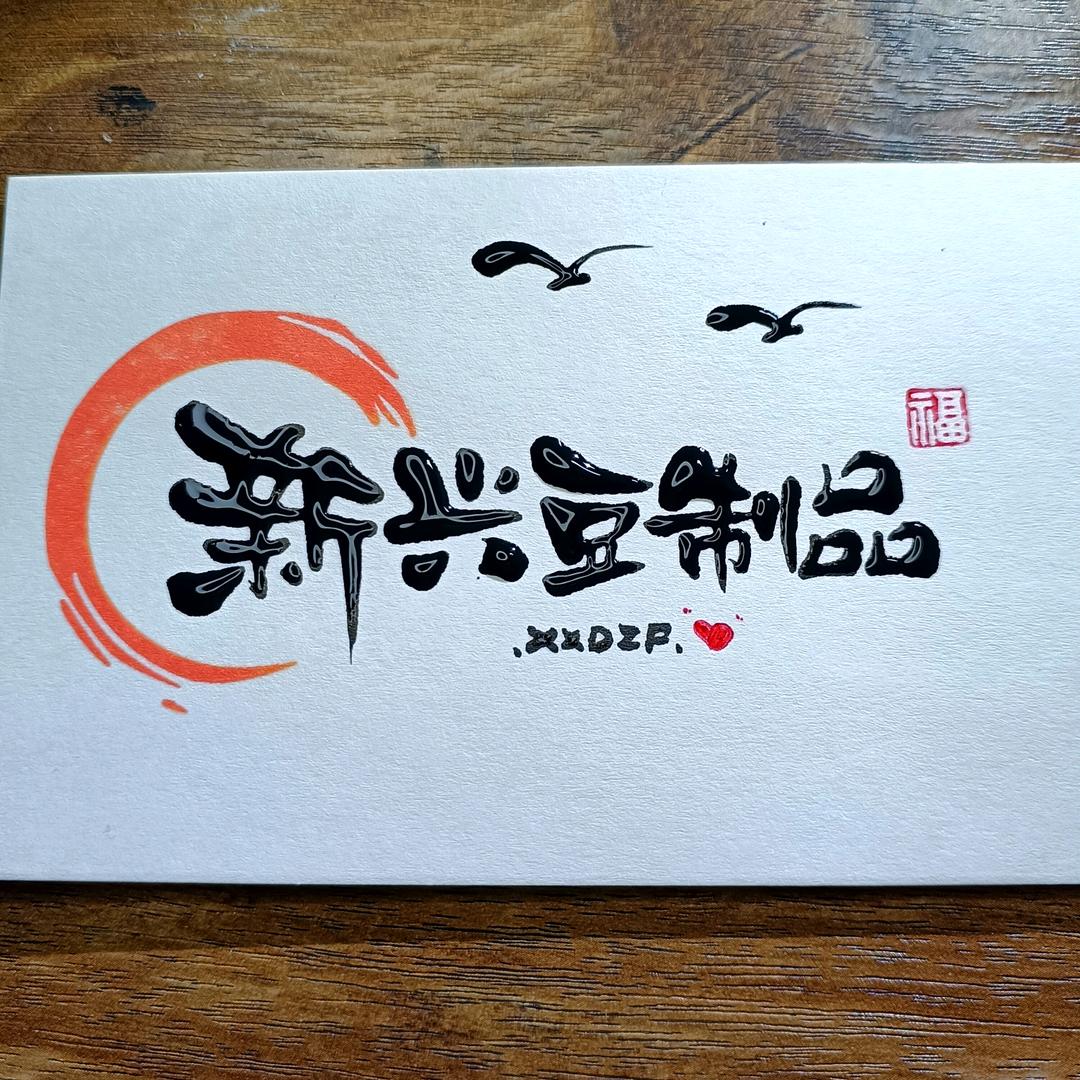 福
新兴豆制品
.XXDZP.